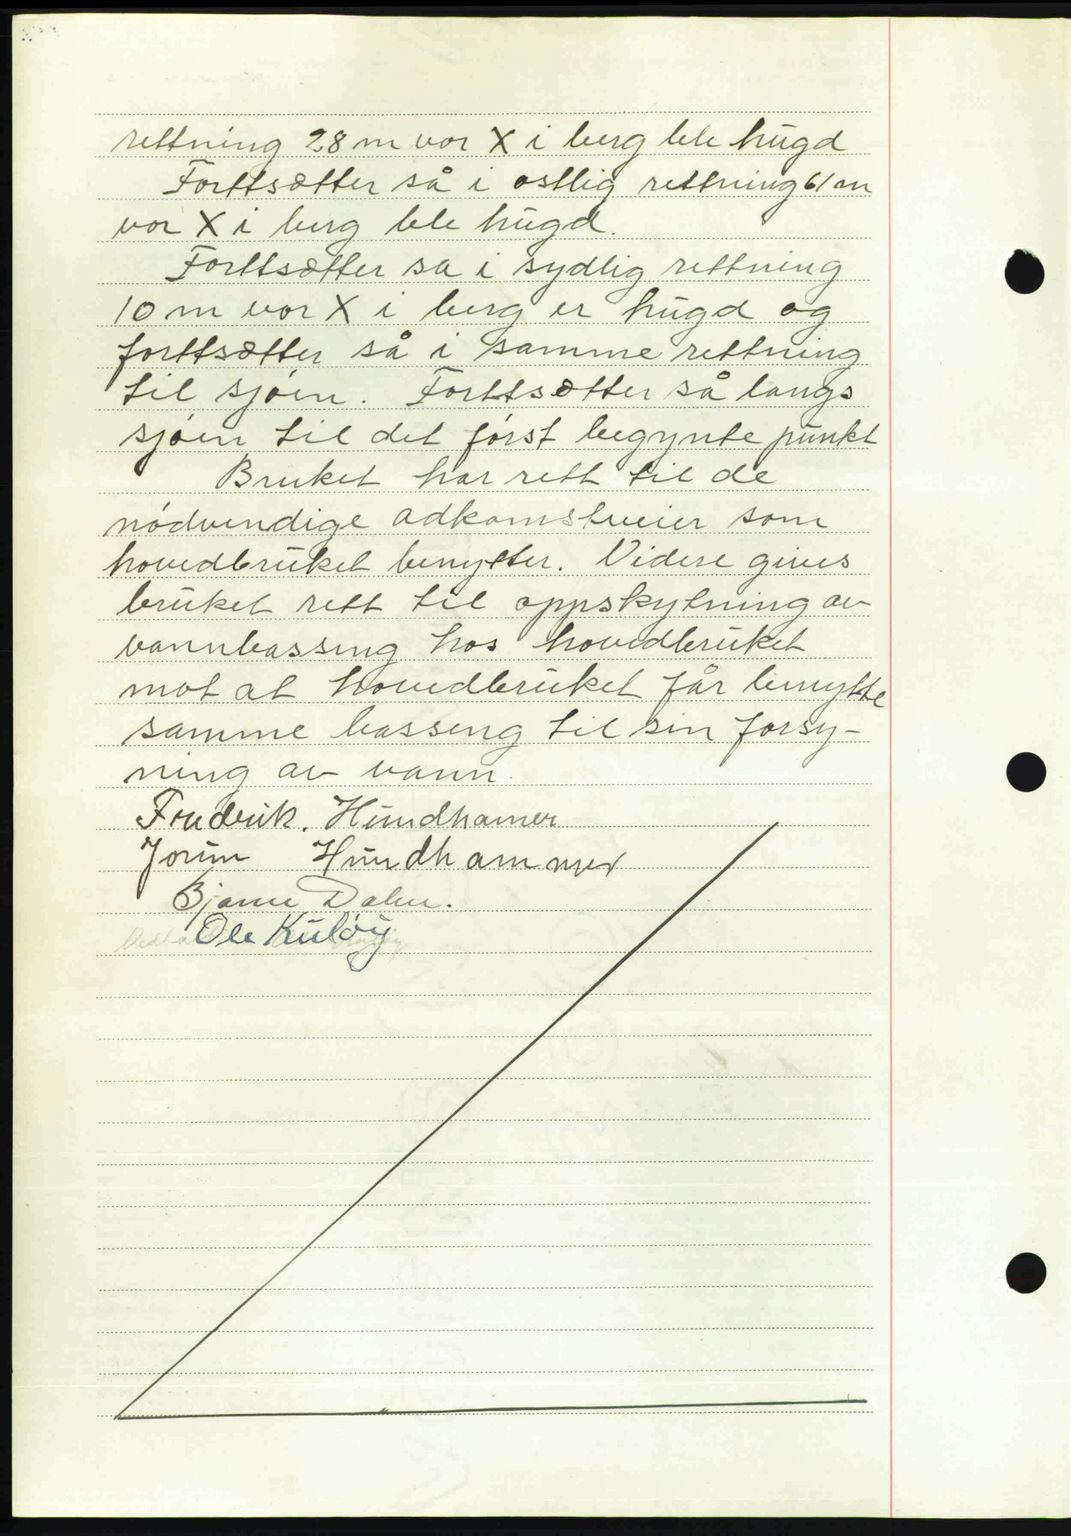 rettning 28 m vor X i berg ble hugd
Forttsætter så i ostlig rettning 61 m
vor X i berg ble hugd.
Forttsætter sa i sydlig rettning
10 m vor X i berg er hugd og
forttsætter så i samme rettning
til sjöen. Forttsætter så langs
sjöen til det först begynte punkt
Bruket har rett til de
nödvendige adkomstveier som
hovedbruket benytter. Videre gives
bruket rett til oppskytning av
vannbasseng hos hovedbruket
mot at hovedbruket får benytte
samme basseng til sin forsy-
ning av vann.
Fredrik. Hundhamer
Jorun Hundhammer
Bjarne Dalen.
Ole Kuløy